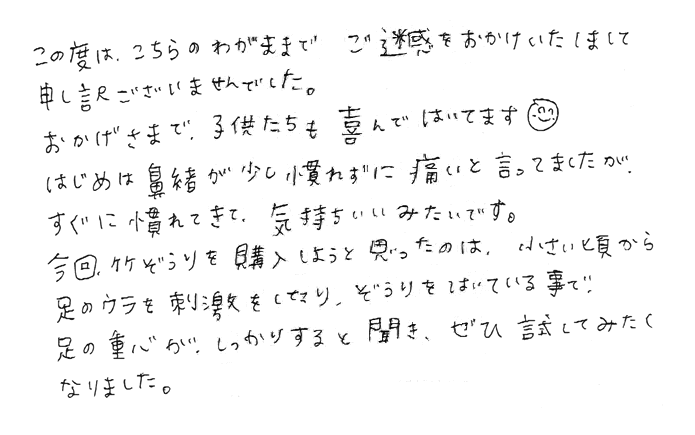 この度は、こちらのわがままで ご迷惑をおかけいたしまして
申し訳ございませんでした。
おかげさまで、子供たちも 喜んで はいてます
はじめは鼻緒が少し慣れずに 痛いと言ってましたが、
すぐに慣れてきて、気持ちいいみたいです。
今回、竹ぞうりを購入しようと思ったのは、小さい頃から
足のウラを刺激をしたり、ぞうりをはいている事で、
足の重心が、しっかりすると聞き、ぜひ 試してみたく
なりました。